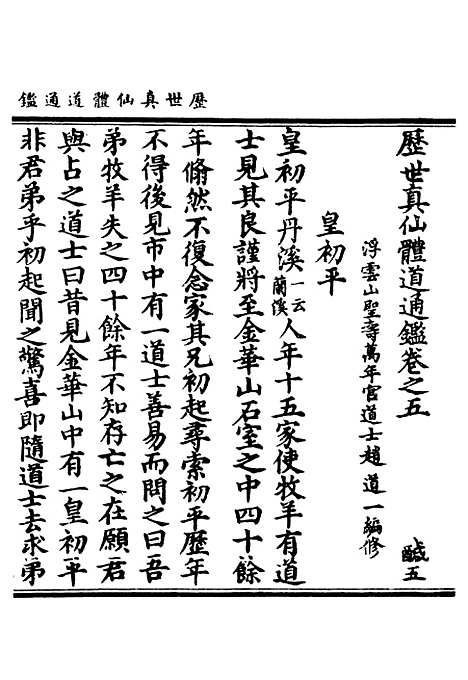 歷世真仙體道通鑑
歷世真仙體道通鑑卷之五 鹹五
浮雲山聖壽萬年宮道士趙道一編修
皇初平
皇初平丹溪一云蘭溪人年十五家使牧羊有道
士見其良謹將至金華山石室之中四十餘
年翛然不復念家其兄初起尋索初平歷年
不得後見市中有一道士善易而問之曰吾
弟牧羊失之四十餘年不知存亡之在願君
與占之道士曰昔見金華山中有一皇初平
非君弟乎初起聞之驚喜即隨道士去求弟